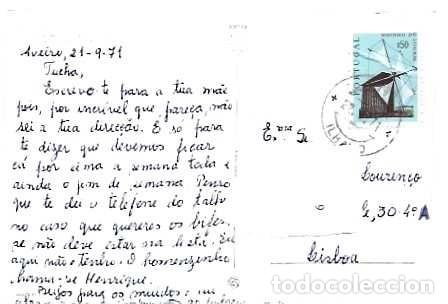 Aveiro, 21-9-71
Tucha,
Escrevo-te para a tua mãe
pois, por incrível que pareça, não
sei a tua direcção. É só para
te dizer que devemos ficar
cá por cima a semana toda e
ainda o fim de semana. Penso
que te dei o telefone do talho
no caso que quereres os bifes,
se não deve estar na lista. Eu
aqui não o tenho. O homenzinho
chama-se Henrique.
Beijos para os miúdos e um
PORTUGAL
1$50
ILHAVO
Ex.ma Sr.
Lourenço
2, 30-4º A
Lisboa
todocoleccion.net